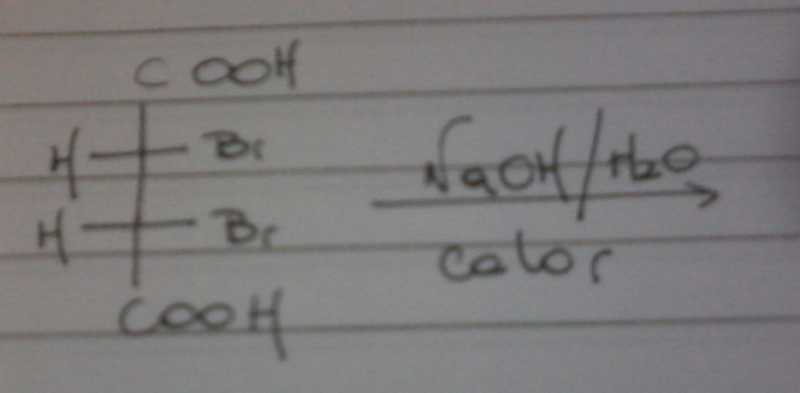 COOH
H Br NaOH/H2O
H Br calor
COOH